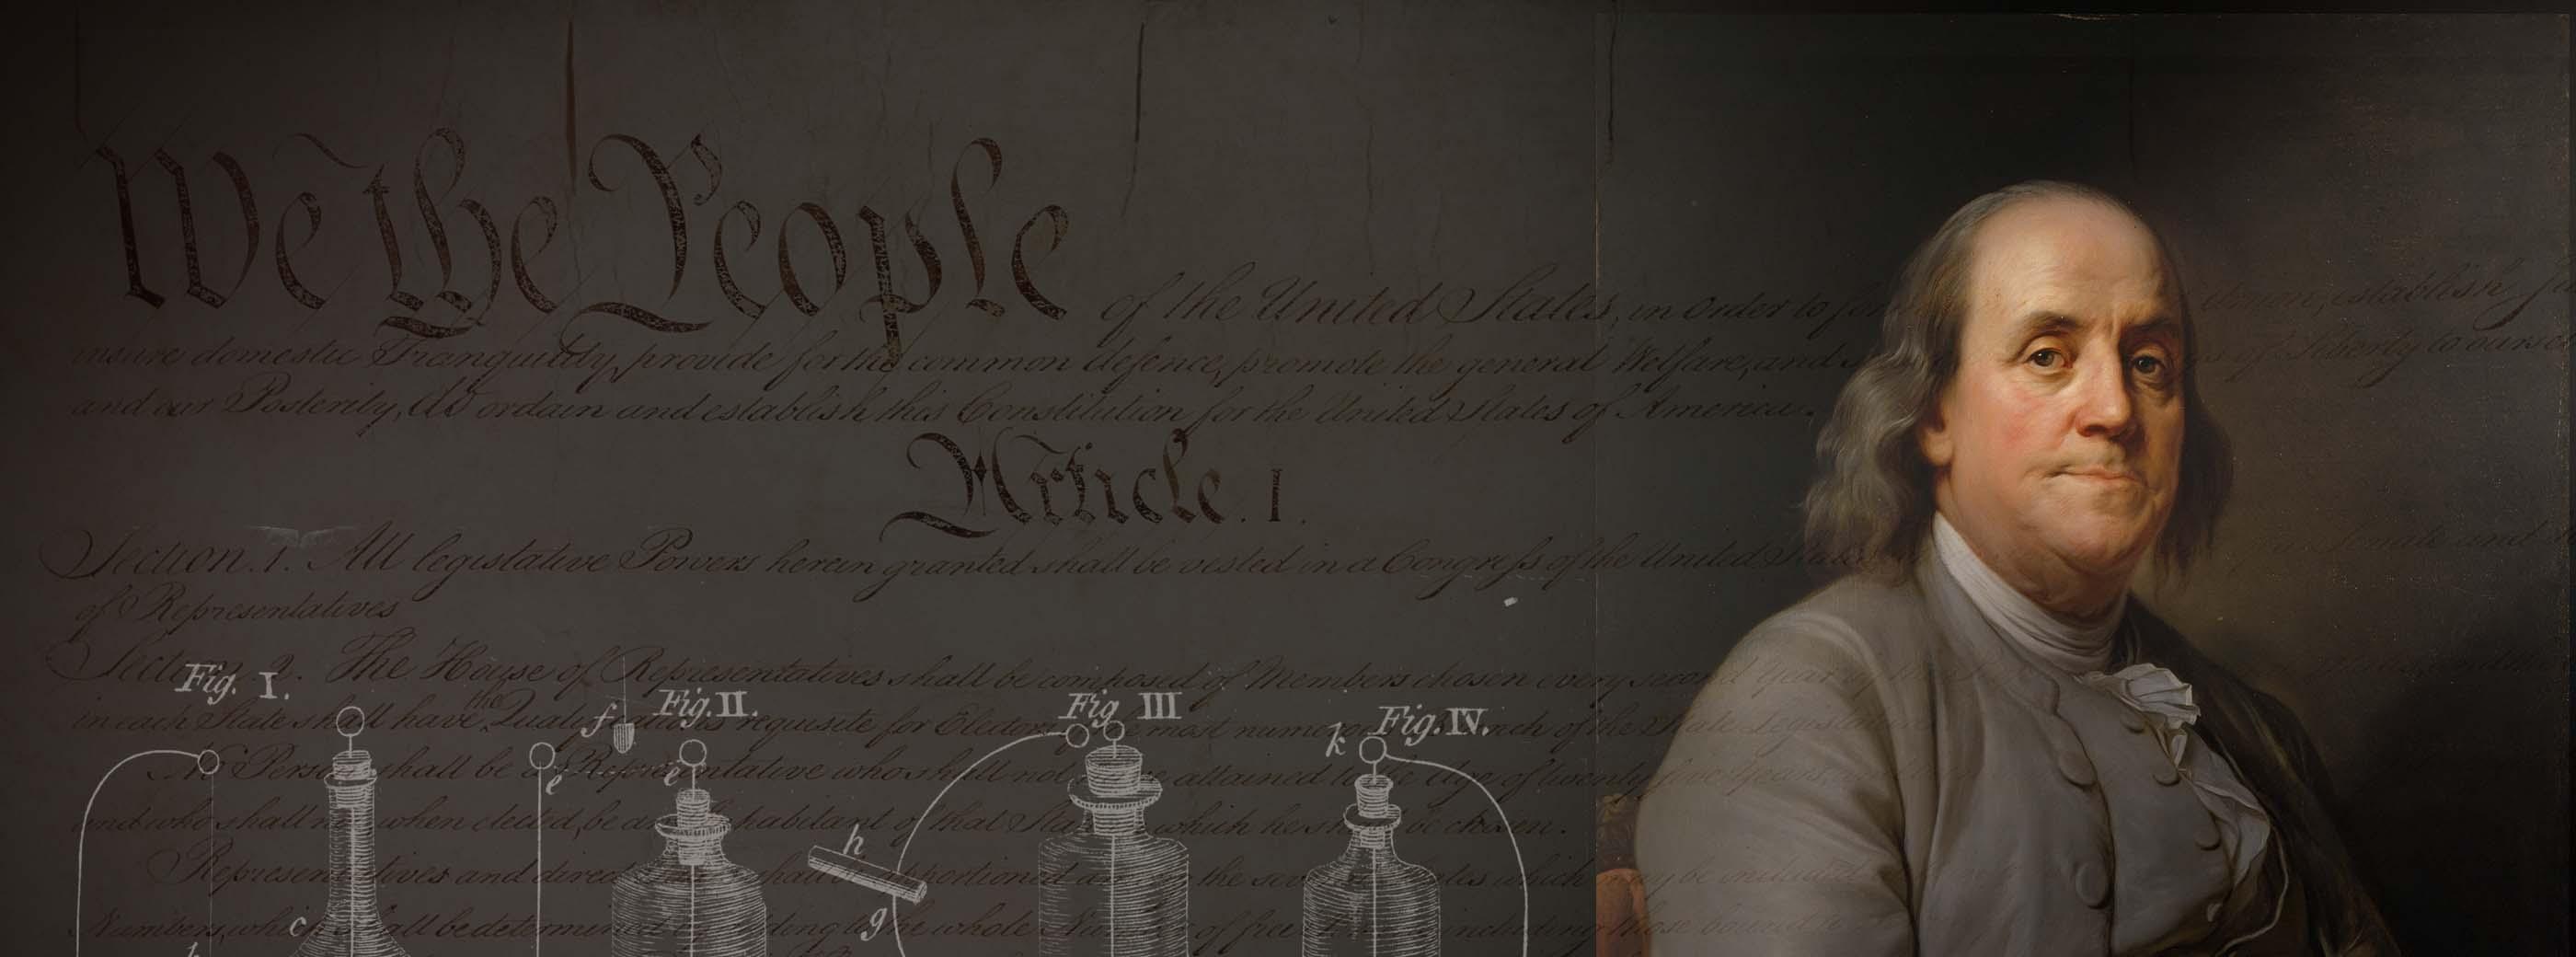 We the People of the United States, in Order to for establish
insure domestic Tranquility, provide for the common defence, promote the general Welfare, and of Liberty to ours
and our Posterity, do ordain and establish this Constitution for the United States of America.
Article. I.
Section. 1. All legislative Powers herein granted shall be vested in a Congress of the United States Senate and
of Representatives
Section. 2. The House of Representatives shall be composed of Members chosen every second Year
Fig. I.
the
Fig. II.
Fig. III
Fig. IV.
in each State shall have Qualifications requisite for Electors most numerous Branch of the State
f
k
No Person shall be a Representative who shall not attained to the Age of twenty
e
e
and who shall not when elected, be an Inhabitant of that State which he shall be chosen.
h
Representatives and direct shall be apportioned the which may be included
c
g
Numbers, which shall be determined by adding to the whole Number of free including those bound to